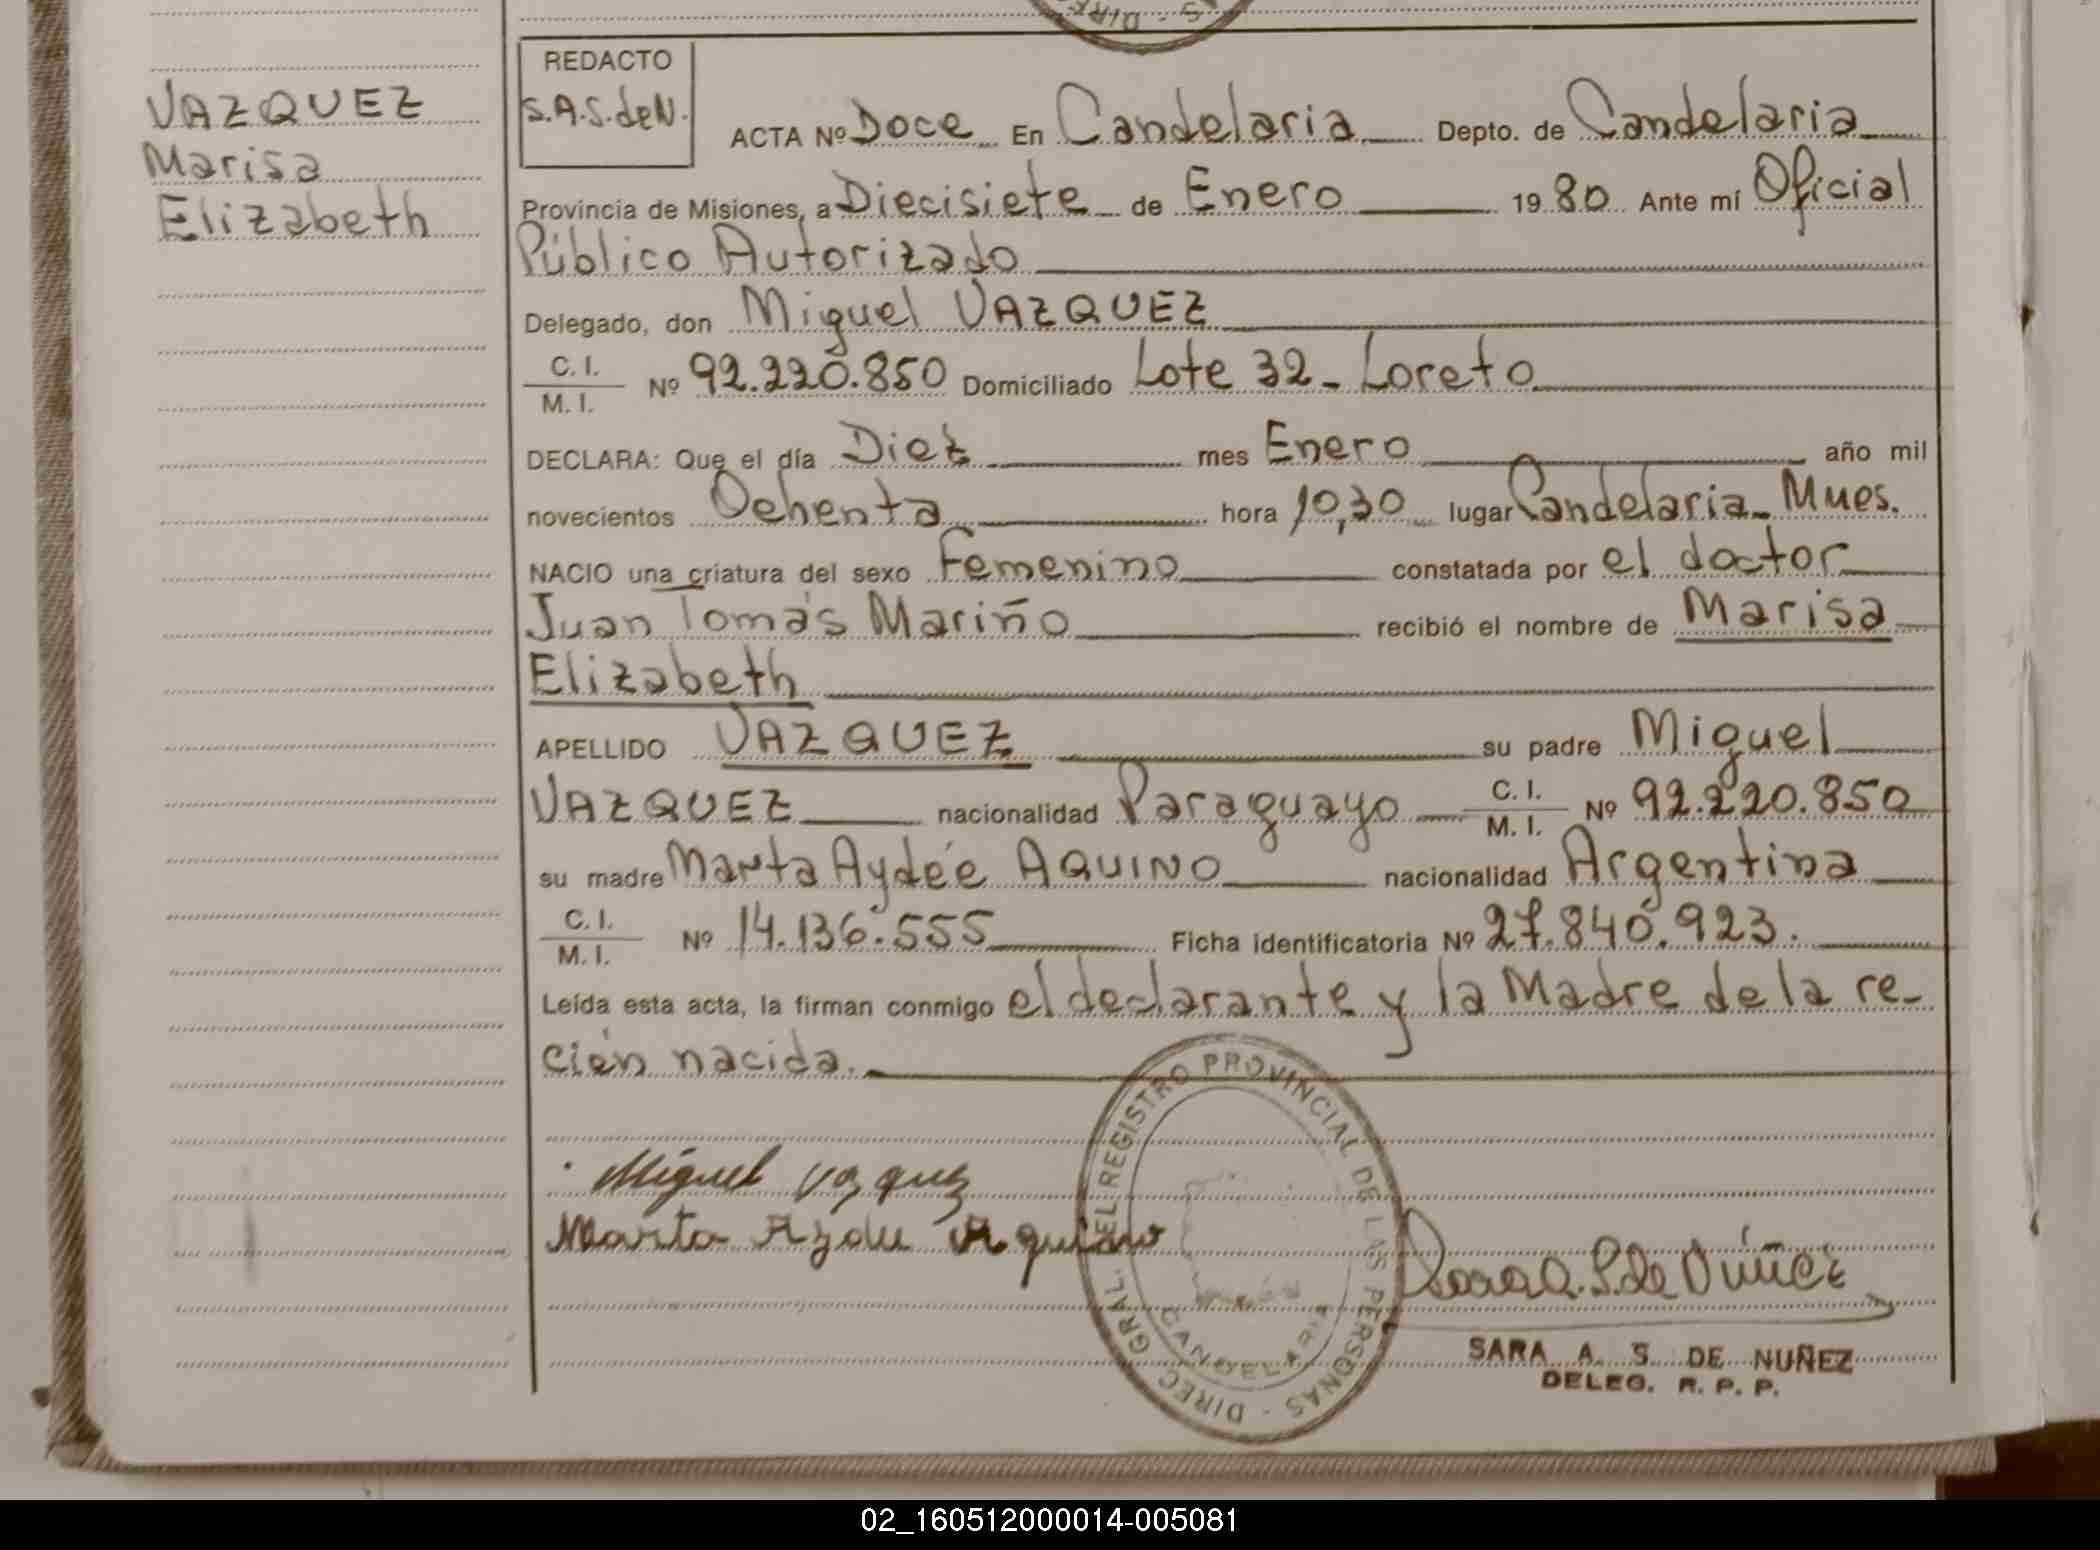 VAZQUEZ
Marisa
Elizabeth
REDACTO
S.A.S.deN.
ACTA Nº Doce En Candelaria Depto. de Candelaria
Provincia de Misiones, a Diecisiete de Enero 1980 Ante mí Oficial
Público Autorizado
Delegado, don Miguel VAZQUEZ
C. I.
M. I. Nº 92.220.850 Domiciliado Lote 32 - Loreto
DECLARA: Que el día Diez mes Enero año mil
novecientos Ochenta hora 10,30 lugar Candelaria - Mnes.
NACIO una criatura del sexo Femenino constatada por el doctor
Juan Tomás Mariño recibió el nombre de Marisa
Elizabeth
APELLIDO VAZQUEZ su padre Miguel
VAZQUEZ nacionalidad Paraguayo C. I. M. I. Nº 92.220.850
su madre Marta Aydée AQUINO nacionalidad Argentina
C. I.
M. I. Nº 14.136.555 Ficha identificatoria Nº 27.840.923.
Leída esta acta, la firman conmigo el declarante y la Madre de la re-
cién nacida.
Miguel Vazquez
Marta Ayde Aquino
DIREC. GRAL. DEL REGISTRO PROVINCIAL DE LAS PERSONAS -
CANDELARIA
Sara A. S. de Núñez
SARA A. S. DE NUÑEZ
DELEG. R. P. P.
02_160512000014-005081